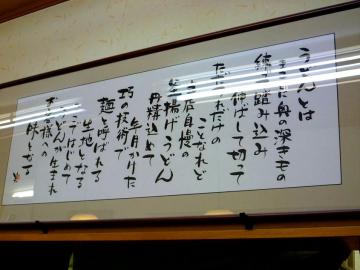 うどんとは
まことに奥の深きもの
練って踏み込み
伸ばして切って
ただそれだけの
ことなれど
当店自慢の
釜揚げうどん
丹精込めて
年月かけた
巧の技術で
麺と呼ばれる
生地となる
こうしてはじめて
うどんが生まれ
お客様への
味となる